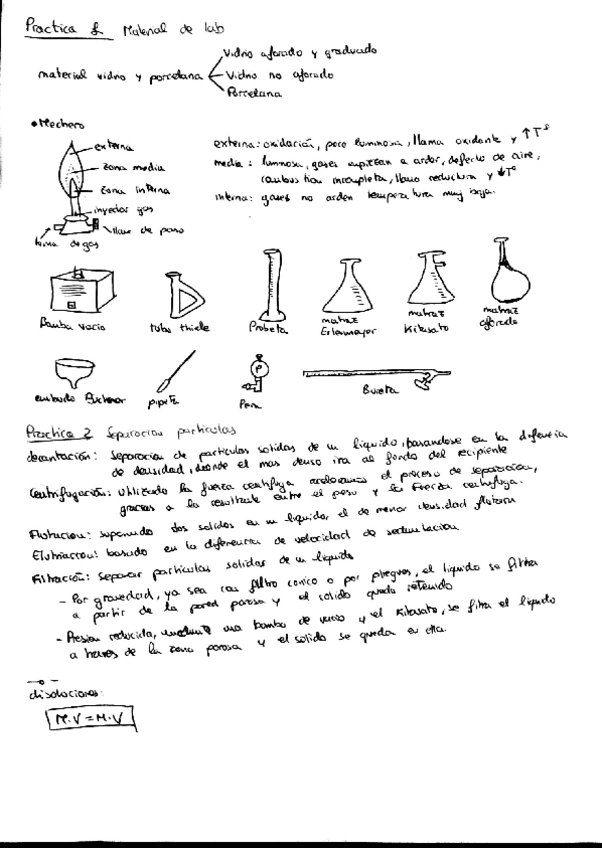 Practica 1 Material de lab
Vidrio aforado y graduado
material vidrio y porcelana Vidrio no aforado
Porcelana
• Mechero
externa
zona media
zona interna
inyector gas
llave de paso
toma de gas
externa: oxidación, poco luminosa, llama oxidante y ↑Tª
media: luminosa, gases empiezan a arder, defecto de aire,
combustion incompleta, llama reductora y ↓Tª
interna: gases no arden temperatura muy baja.
Bomba vacio
tubo thiele
Probeta
matraz
Erlenmayer
matraz
Kitasato
matraz
aforado
embudo Buchner
pipeta
Pera
Bureta
Practica 2 Separacion particulas
decantación: Separacion de particulas solidas de un liquido, basandose en la diferencia
de densidad, donde el mas denso ira al fondo del recipiente
Centrifugación: Utilizado la fuerza centrifuga aceleramos el proceso de separacion,
gracias a la resultante entre el peso y la fuerza centrifuga.
Flotacion: suponiendo dos solidos en un liquido, el de menor densidad flotara
Elutriacion: basado en la diferencia de velocidad de sedimentacion.
Filtración: Separar particulas solidas de un liquido
- Por gravedad, ya sea con filtro conico o por pliegues, el liquido se filtra
a partir de la pared porosa y el solido queda retenido
- Presion reducida, mediante una bomba de vacio y el Kitasato, se filtra el liquido
a traves de la zona porosa y el solido se queda en ella.
disoluciones:
M·V = M·V